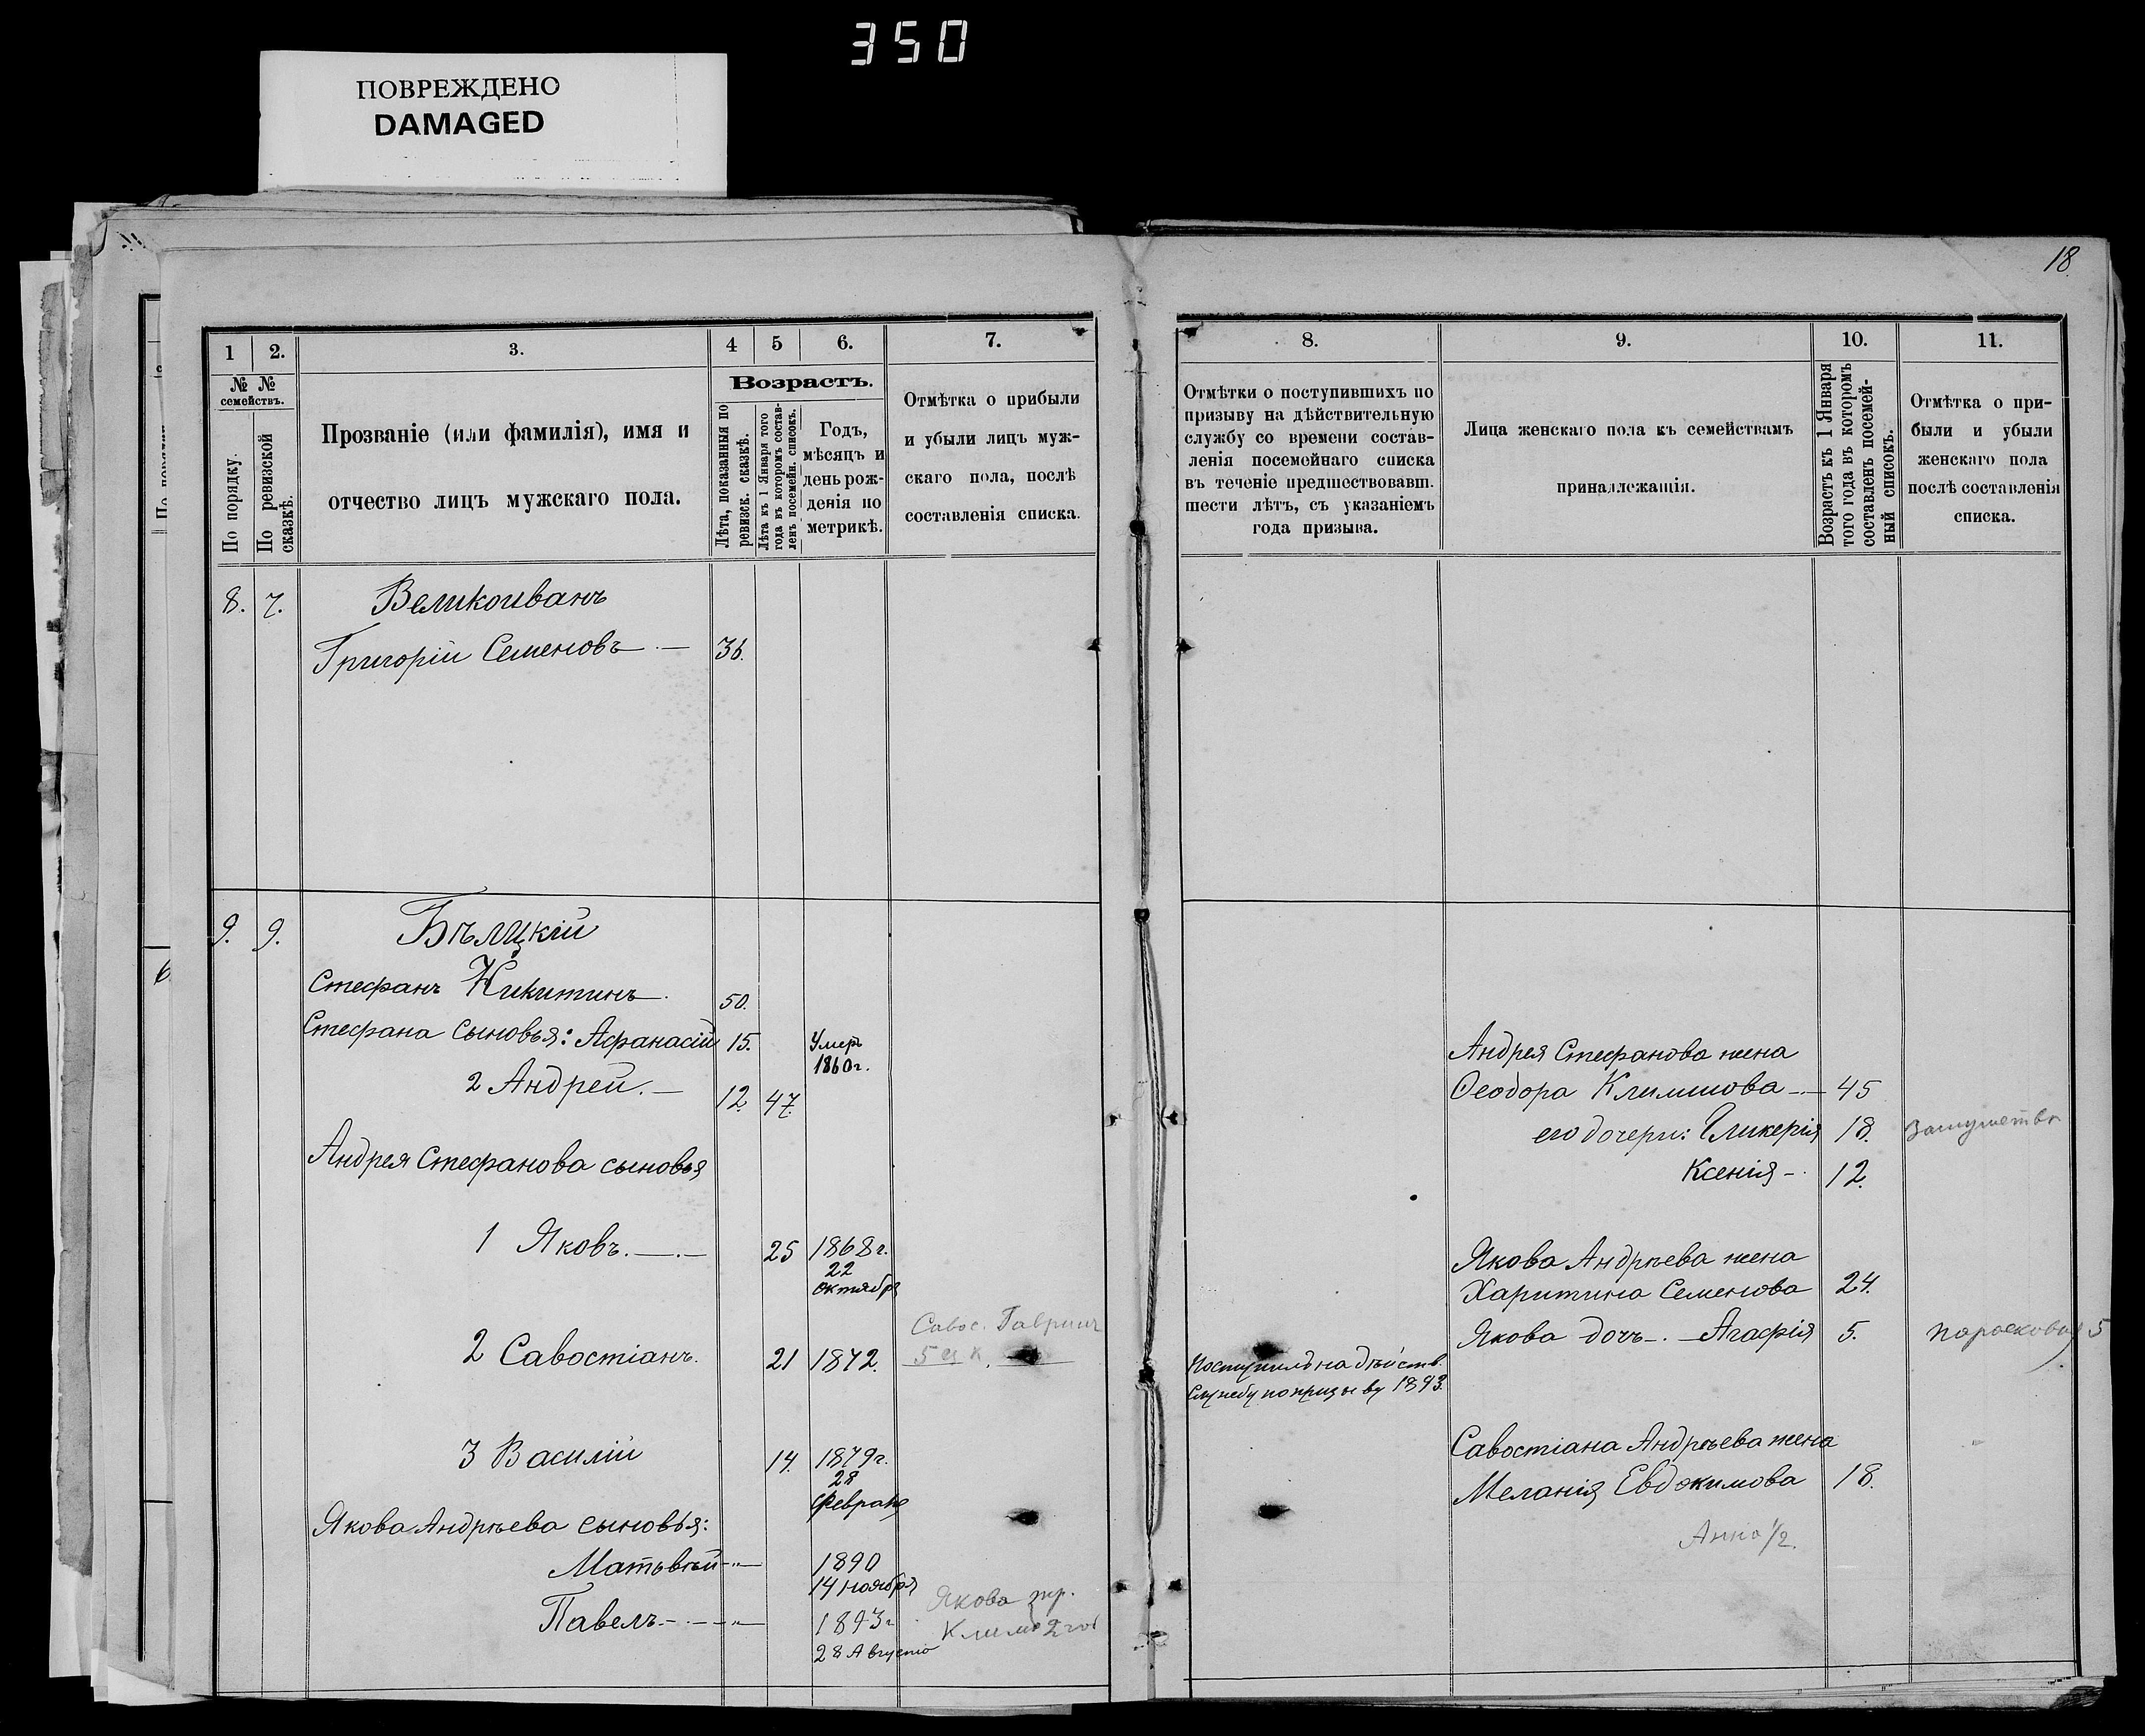 350
ПОВРЕЖДЕНО
DAMAGED
18
1
2.
3.
4
5
6.
7.
№ №
семействъ.
По порядку.
По ревизской
сказкѣ.
Прозваніе (или фамилія), имя и
отчество лицъ мужскаго пола.
Возрастъ.
Лѣта, показанныя по
ревизск. сказкѣ.
Лѣта къ 1 Января того
года въ которомъ состав-
ленъ посемейн. списокъ.
Годъ,
мѣсяцъ и
день рож-
денія по
метрикѣ.
Отмѣтка о прибыли
и убыли лицъ муж-
скаго пола, послѣ
составленія списка.
8.
9.
10.
11.
Отмѣтки о поступившихъ по
призыву на дѣйствительную
службу со времени состав-
ленія посемейнаго списка
въ теченіе предшествовавш.
шести лѣтъ, съ указаніемъ
года призыва.
Лица женскаго пола къ семействамъ
принадлежащія.
Возрастъ къ 1 Января
того года въ которомъ
составленъ посемей-
ный списокъ.
Отмѣтка о при-
были и убыли
женскаго пола
послѣ составленія
списка.
8. 7. Великоиванъ
Григорій Семеновъ 36.
9. 9. Бѣлицкій
Стефанъ Никитинъ 50.
Стефана сыновья: Афанасій 15. Умеръ
1860г.
2 Андрей. 12. 47.
Андрея Стефанова сыновья
1 Яковъ. 25 1868г.
22
октября
2 Савостіанъ. 21 1872.
Савос. Гавриилъ
3 Василій 14. 1879г.
28
февраля
Якова Андрѣева сыновья:
Матвѣй 1890
14 ноября
Павелъ 1893г
28 Августа
Якова
Климъ
Поступилъ на дѣйств.
службу по призыву 1893.
Андрея Стефанова жена
Ѳеодора Климшова 45
его дочери: Гликерія 18. Замужетвѣ
Ксенія 12.
Якова Андрѣева жена
Харитина Семенова 24.
Якова дочь Агафія 5. Парасковія 5
Савостіана Андрѣева жена
Меланія Евдокимова 18.
Анна 1/2.
6